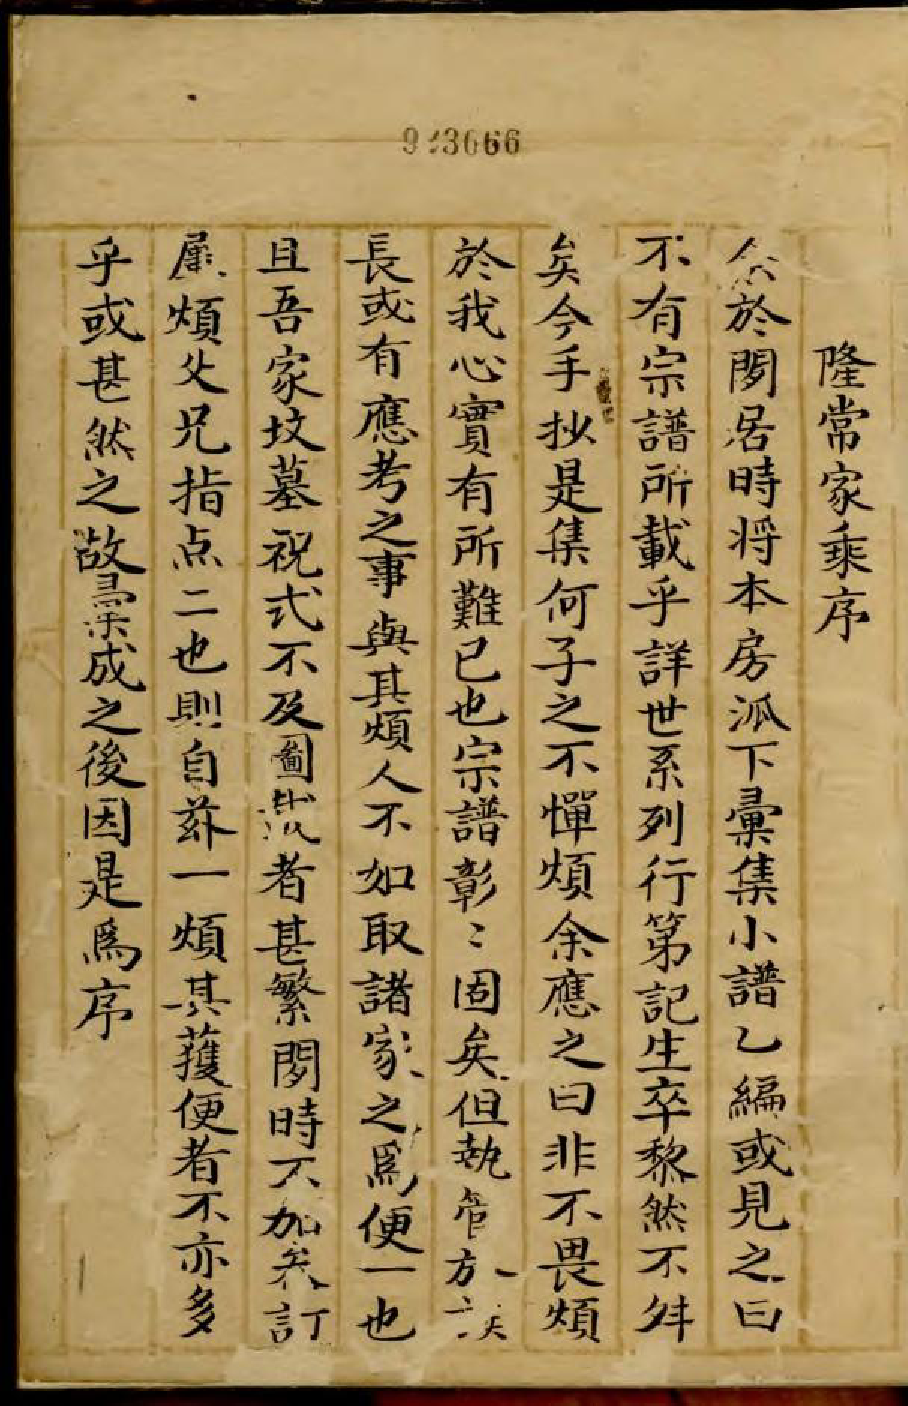 923666
隆常家乘序
余於閒居時将本房派下彙集小譜乙編或見之曰
不有宗譜所載乎詳世系列行第記生卒黎然不舛
矣今手抄是集何子之不憚煩余應之曰非不畏煩
於我心實有所難已也宗譜彰〻固矣但執管方
長或有應考之事與其煩人不如取諸家之爲便一也
且吾家坟墓祝式不及圖載者甚繁閒時不加叅訂
屢煩父兄指点二也則自茲一煩其獲便者不亦多
乎或甚然之故彙成之後因是爲序